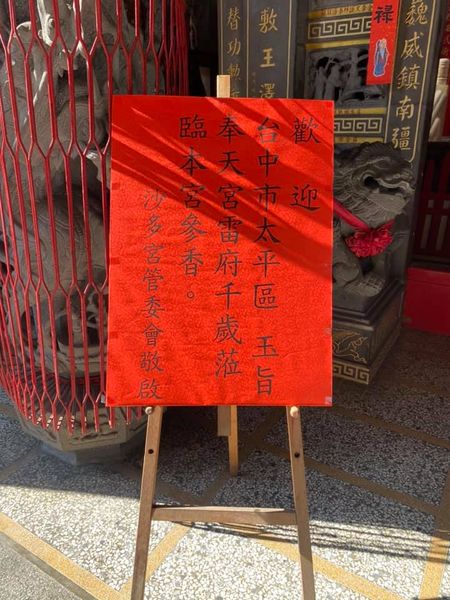 歡迎
台中市太平區 玉旨
奉天宮雷府千歲蒞
臨本宮參香。
沙多宮管委會敬啟
祿
魏威鎮南疆
敷王澤
替功勳